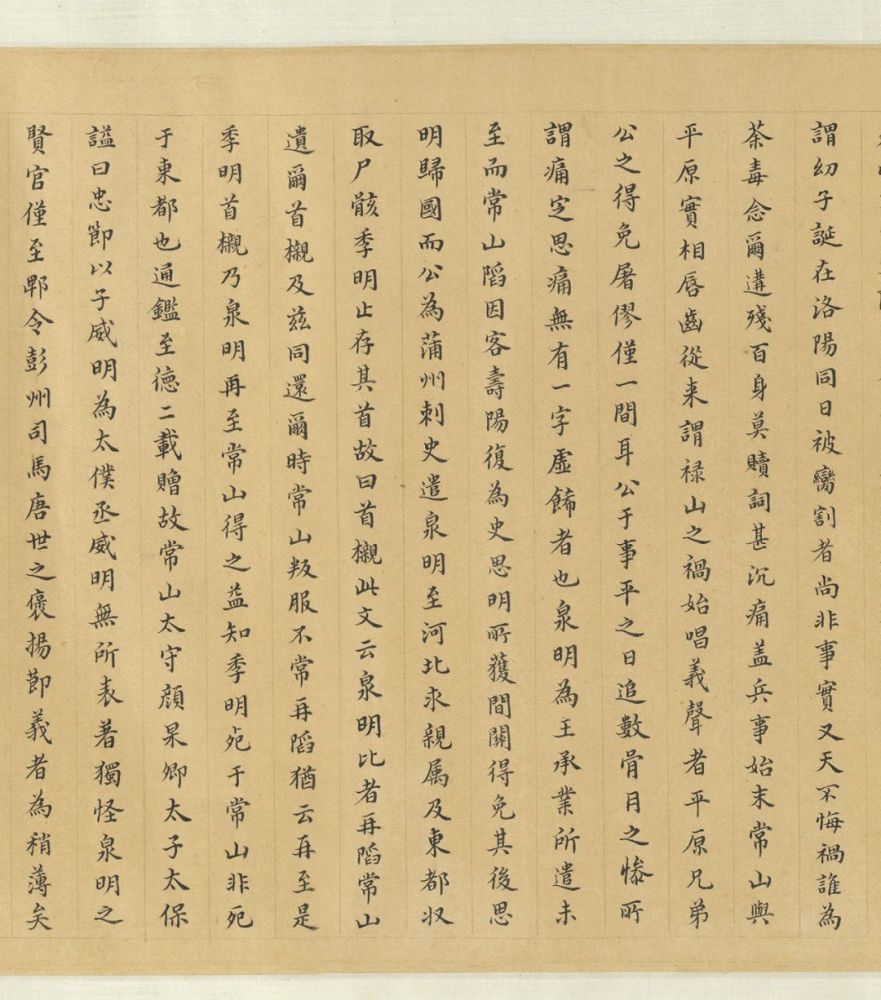 謂幼子誕在洛陽同日被臠割者尚非事實又天不悔禍誰為
荼毒念爾遘殘百身莫贖詞甚沉痛盖兵事始末常山與
平原實相唇齒從来謂禄山之禍始唱義聲者平原兄弟
公之得免屠僇僅一間耳公于事平之日追數骨月之慘所
謂痛定思痛無有一字虛餙者也泉明為王承業所遣未
至而常山䧟因客壽陽復為史思明所獲間關得免其後思
明歸國而公為蒲州刺史遣泉明至河北求親属及東都収
取尸骸季明止存其首故曰首櫬此文云泉明比者再䧟常山
遺爾首櫬及兹同還爾時常山叛服不常再䧟猶云再至是
季明首櫬乃泉明再至常山得之益知季明死于常山非死
于東都也通鑑至德二載贈故常山太守顔杲卿太子太保
諡曰忠節以子威明為太僕丞威明無所表著獨怪泉明之
賢官僅至郫令彭州司馬唐世之褒揚節義者為稍薄矣